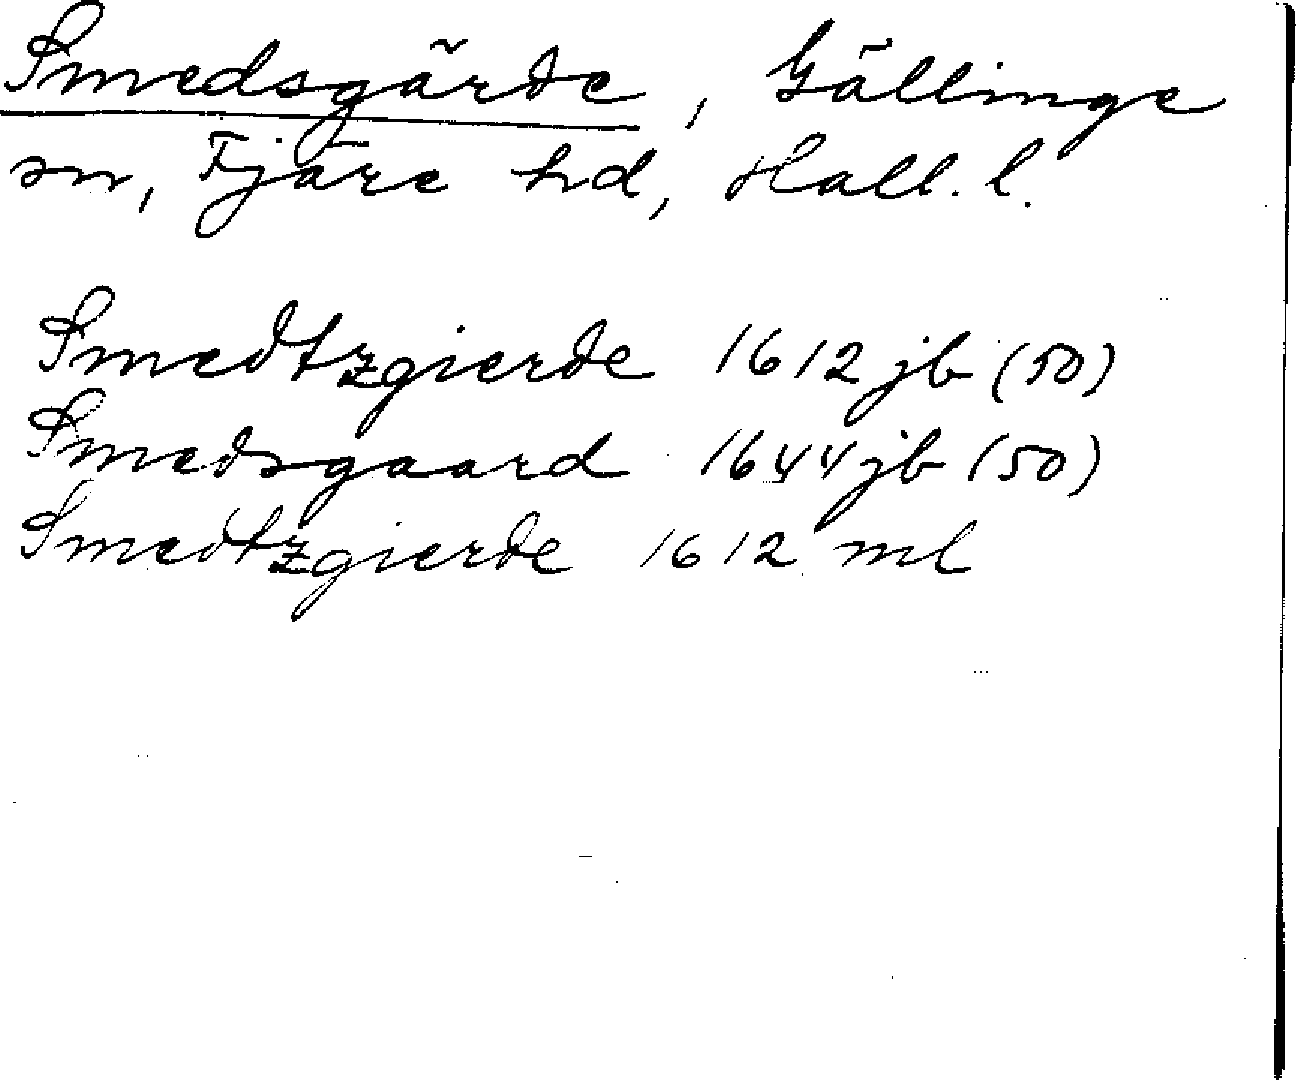 Smedsgärde, Gällinge
sn, Fjäre hd, Hall. l.
Smedtzgierde 1612 jb (50)
Smedsgaard 1644 jb (50)
Smedtzgierde 1612 ml